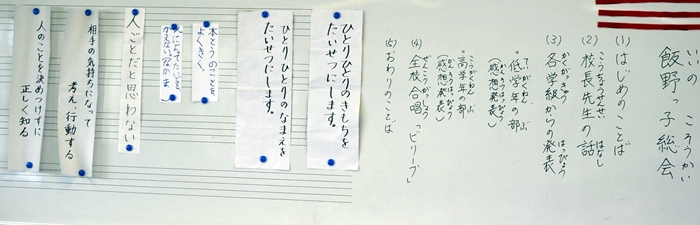 飯野っ子総会
いいの こ そうかい
(1) はじめのことば
(2) 校長先生の話
こうちょうせんせい はなし
(3) 各学級からの発表
かくがっきゅう はっぴょう
・低学年の部
ていがくねん ぶ
(感想発表)
かんそうはっぴょう
・高学年の部
こうがくねん ぶ
(感想発表)
かんそうはっぴょう
(4) 全校合唱「ビリーブ」
ぜんこうがっしょう
(5) おわりのことば
ひとりひとりのきもちを
たいせつにします。
ひとりひとりのなまえを
たいせつにします。
本とうのことを
よくきく。
人ごとだと思わない
相手の気持ちになって
考え、行動する
人のことを決めつけずに
正しく知る